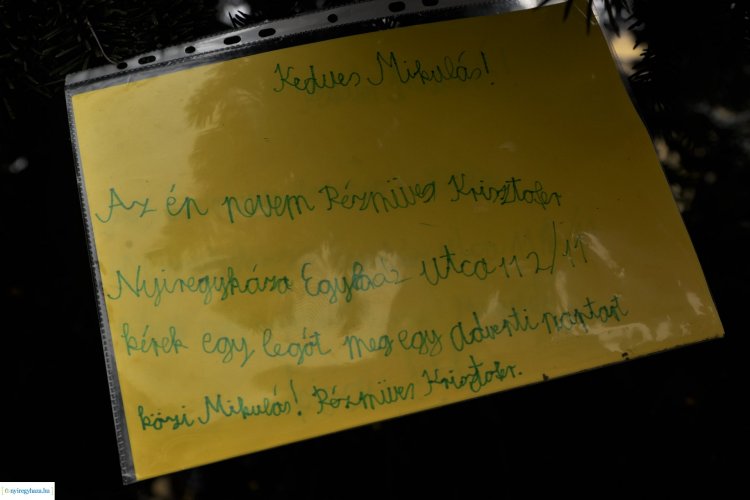 Kedves Mikulás!
Az én nevem Rézmüves Krisztofer
Nyiregyháza Egyház utca 11 2/11
kérek egy legót meg egy adventi naptárt
közi Mikulás! Rézmüves Krisztofer.
nyiregyhaza.hu